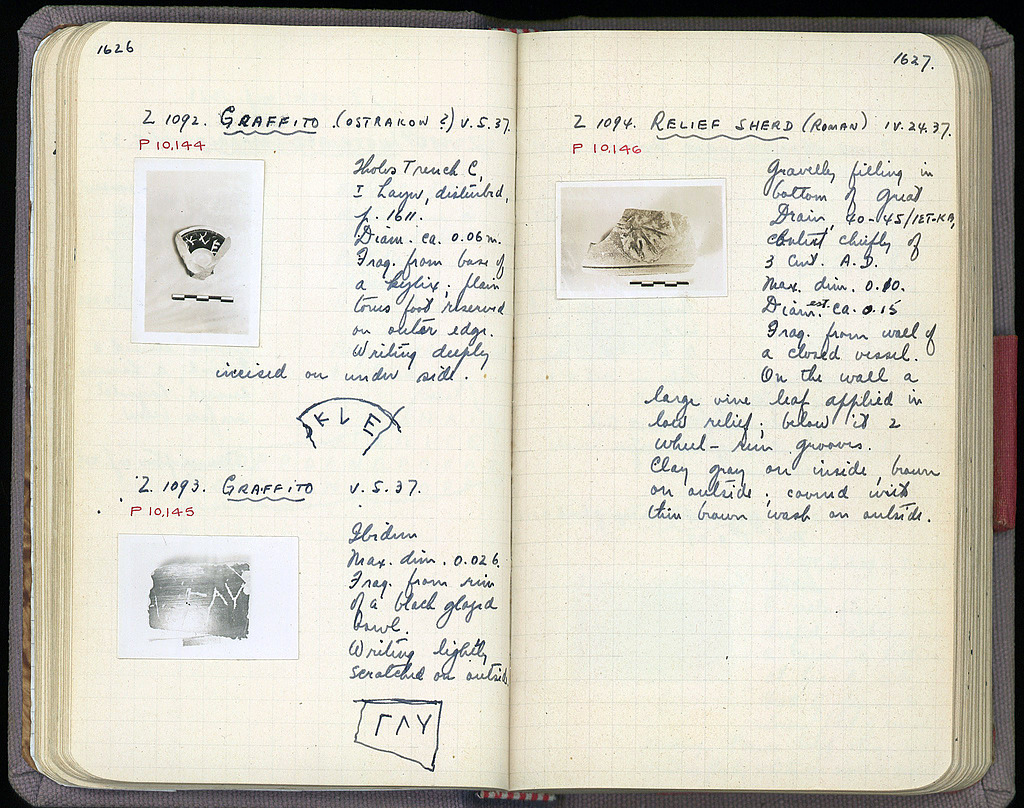 1626
Z 1092. GRAFFITO (OSTRAKON ?) V.5.37.
P 10,144
Tholos Trench C,
I Layer, disturbed,
p. 1611.
Diam. ca. 0.06 m.
Frag. from base of
a kylix; plain
torus foot reserved
on outer edge.
Writing deeply
incised on under side.
KLE
KLE
Z 1093. GRAFFITO V.5.37.
P 10,145
Ibidem
Max. dim. 0.026.
Frag. from rim
of a black glazed
bowl.
Writing lightly
scratched on outside
ΓΛΥ
1627.
Z 1094. RELIEF SHERD (ROMAN) IV.24.37.
P 10,146
Gravelly filling in
bottom of Great
Drain, 40-45/ΙΕΤ-ΚΑ,
context chiefly of
3 Cent. A.D.
Max. dim. 0.10.
Diam. est. ca. 0.15
Frag. from wall of
a closed vessel.
On the wall a
large vine leaf applied in
low relief; below it 2
wheel-run grooves.
Clay gray on inside, brown
on outside; covered with
thin brown wash on outside.